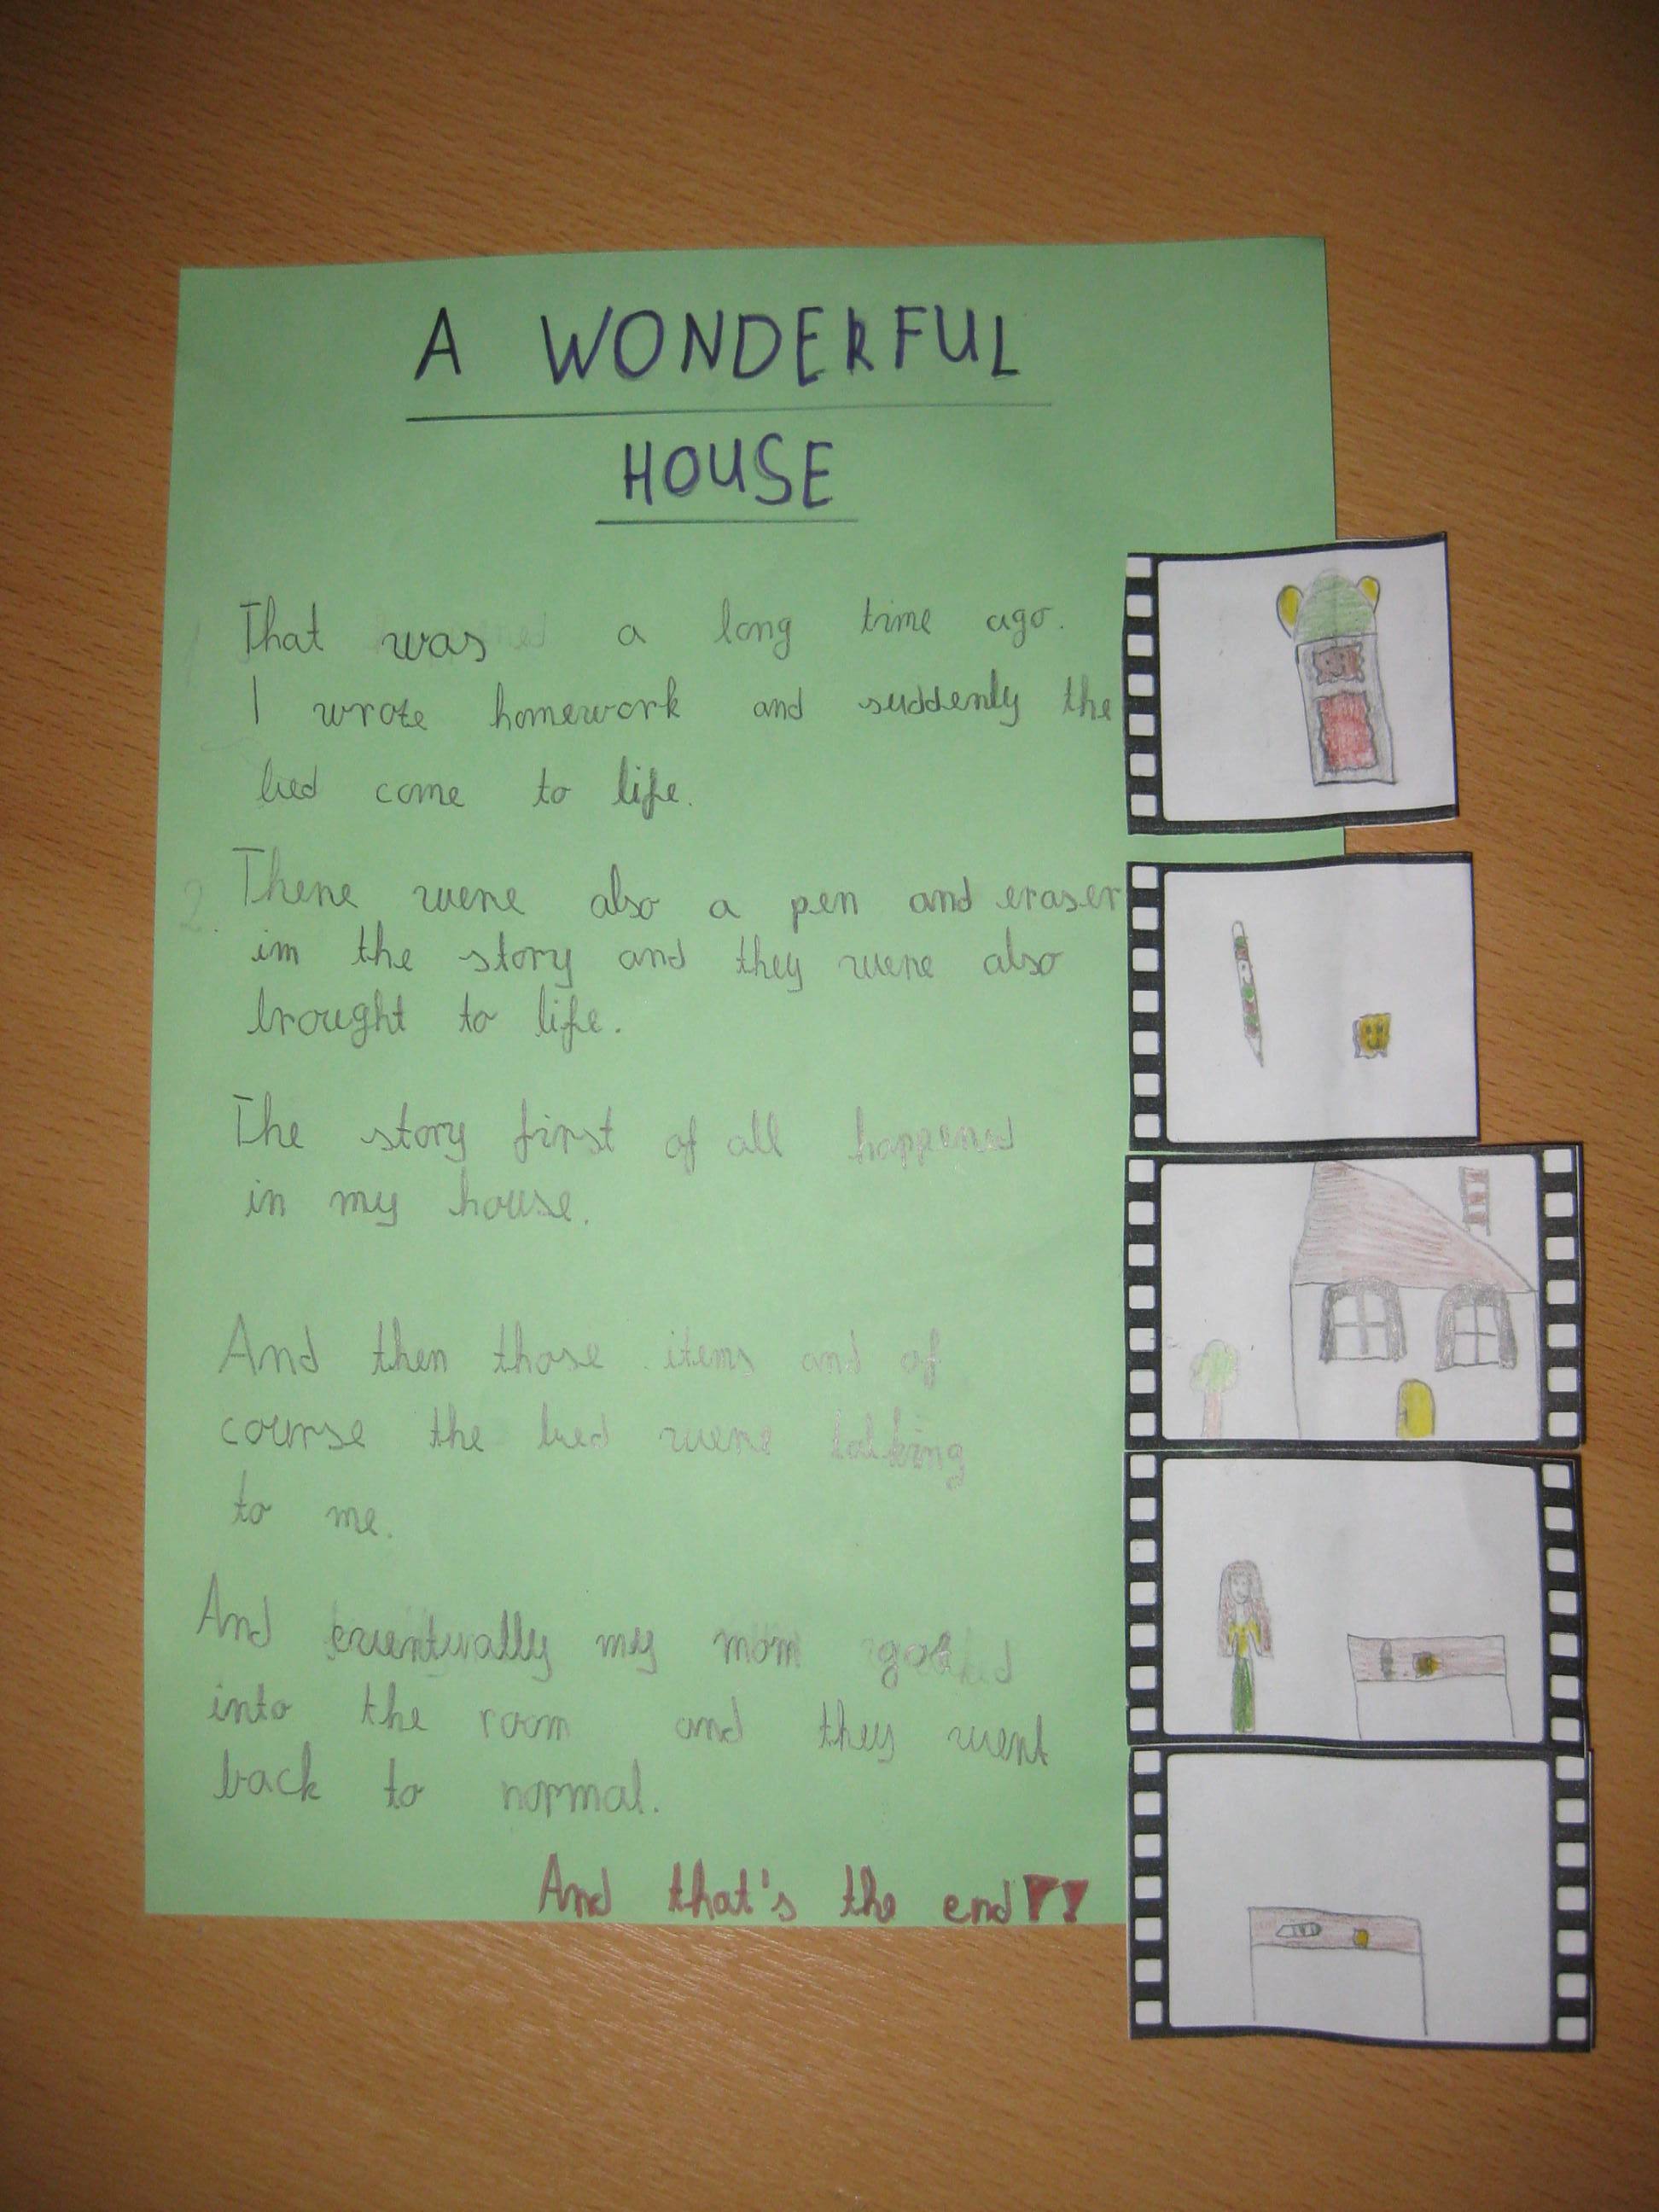 A WONDERFUL
HOUSE
That was a long time ago.
I wrote homework and suddenly the
bed come to life.
2. There were also a pen and eraser
im the story and they were also
brought to life.
The story first of all happened
in my house.
And then those items and of
course the bed were talking
to me.
And eventually my mom
into the room and they went
back to normal.
And that's the end!!